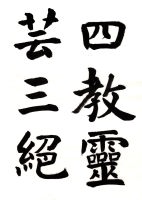 四教靈
芸三絕